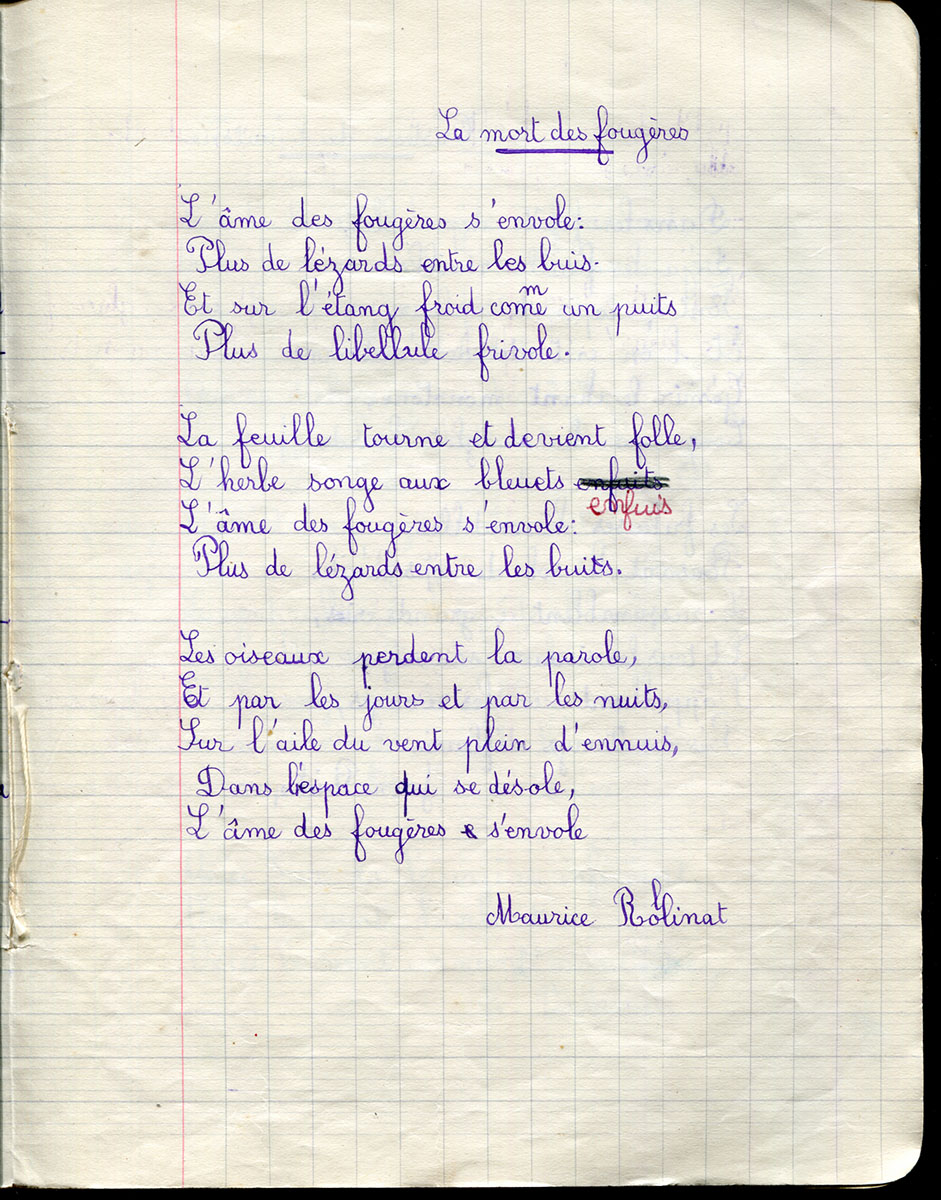 La mort des fougères
L'âme des fougères s'envole:
Plus de lézards entre les buis.
Et sur l'étang froid comme un puits
Plus de libellule frivole.
La feuille tourne et devient folle,
L'herbe songe aux bleuets enfuits
enfuis
L'âme des fougères s'envole:
Plus de lézards entre les buits.
Les oiseaux perdent la parole,
Et par les jours et par les nuits,
Sur l'aile du vent plein d'ennuis,
Dans l'espace qui se désole,
L'âme des fougères s'envole
Maurice Rollinat